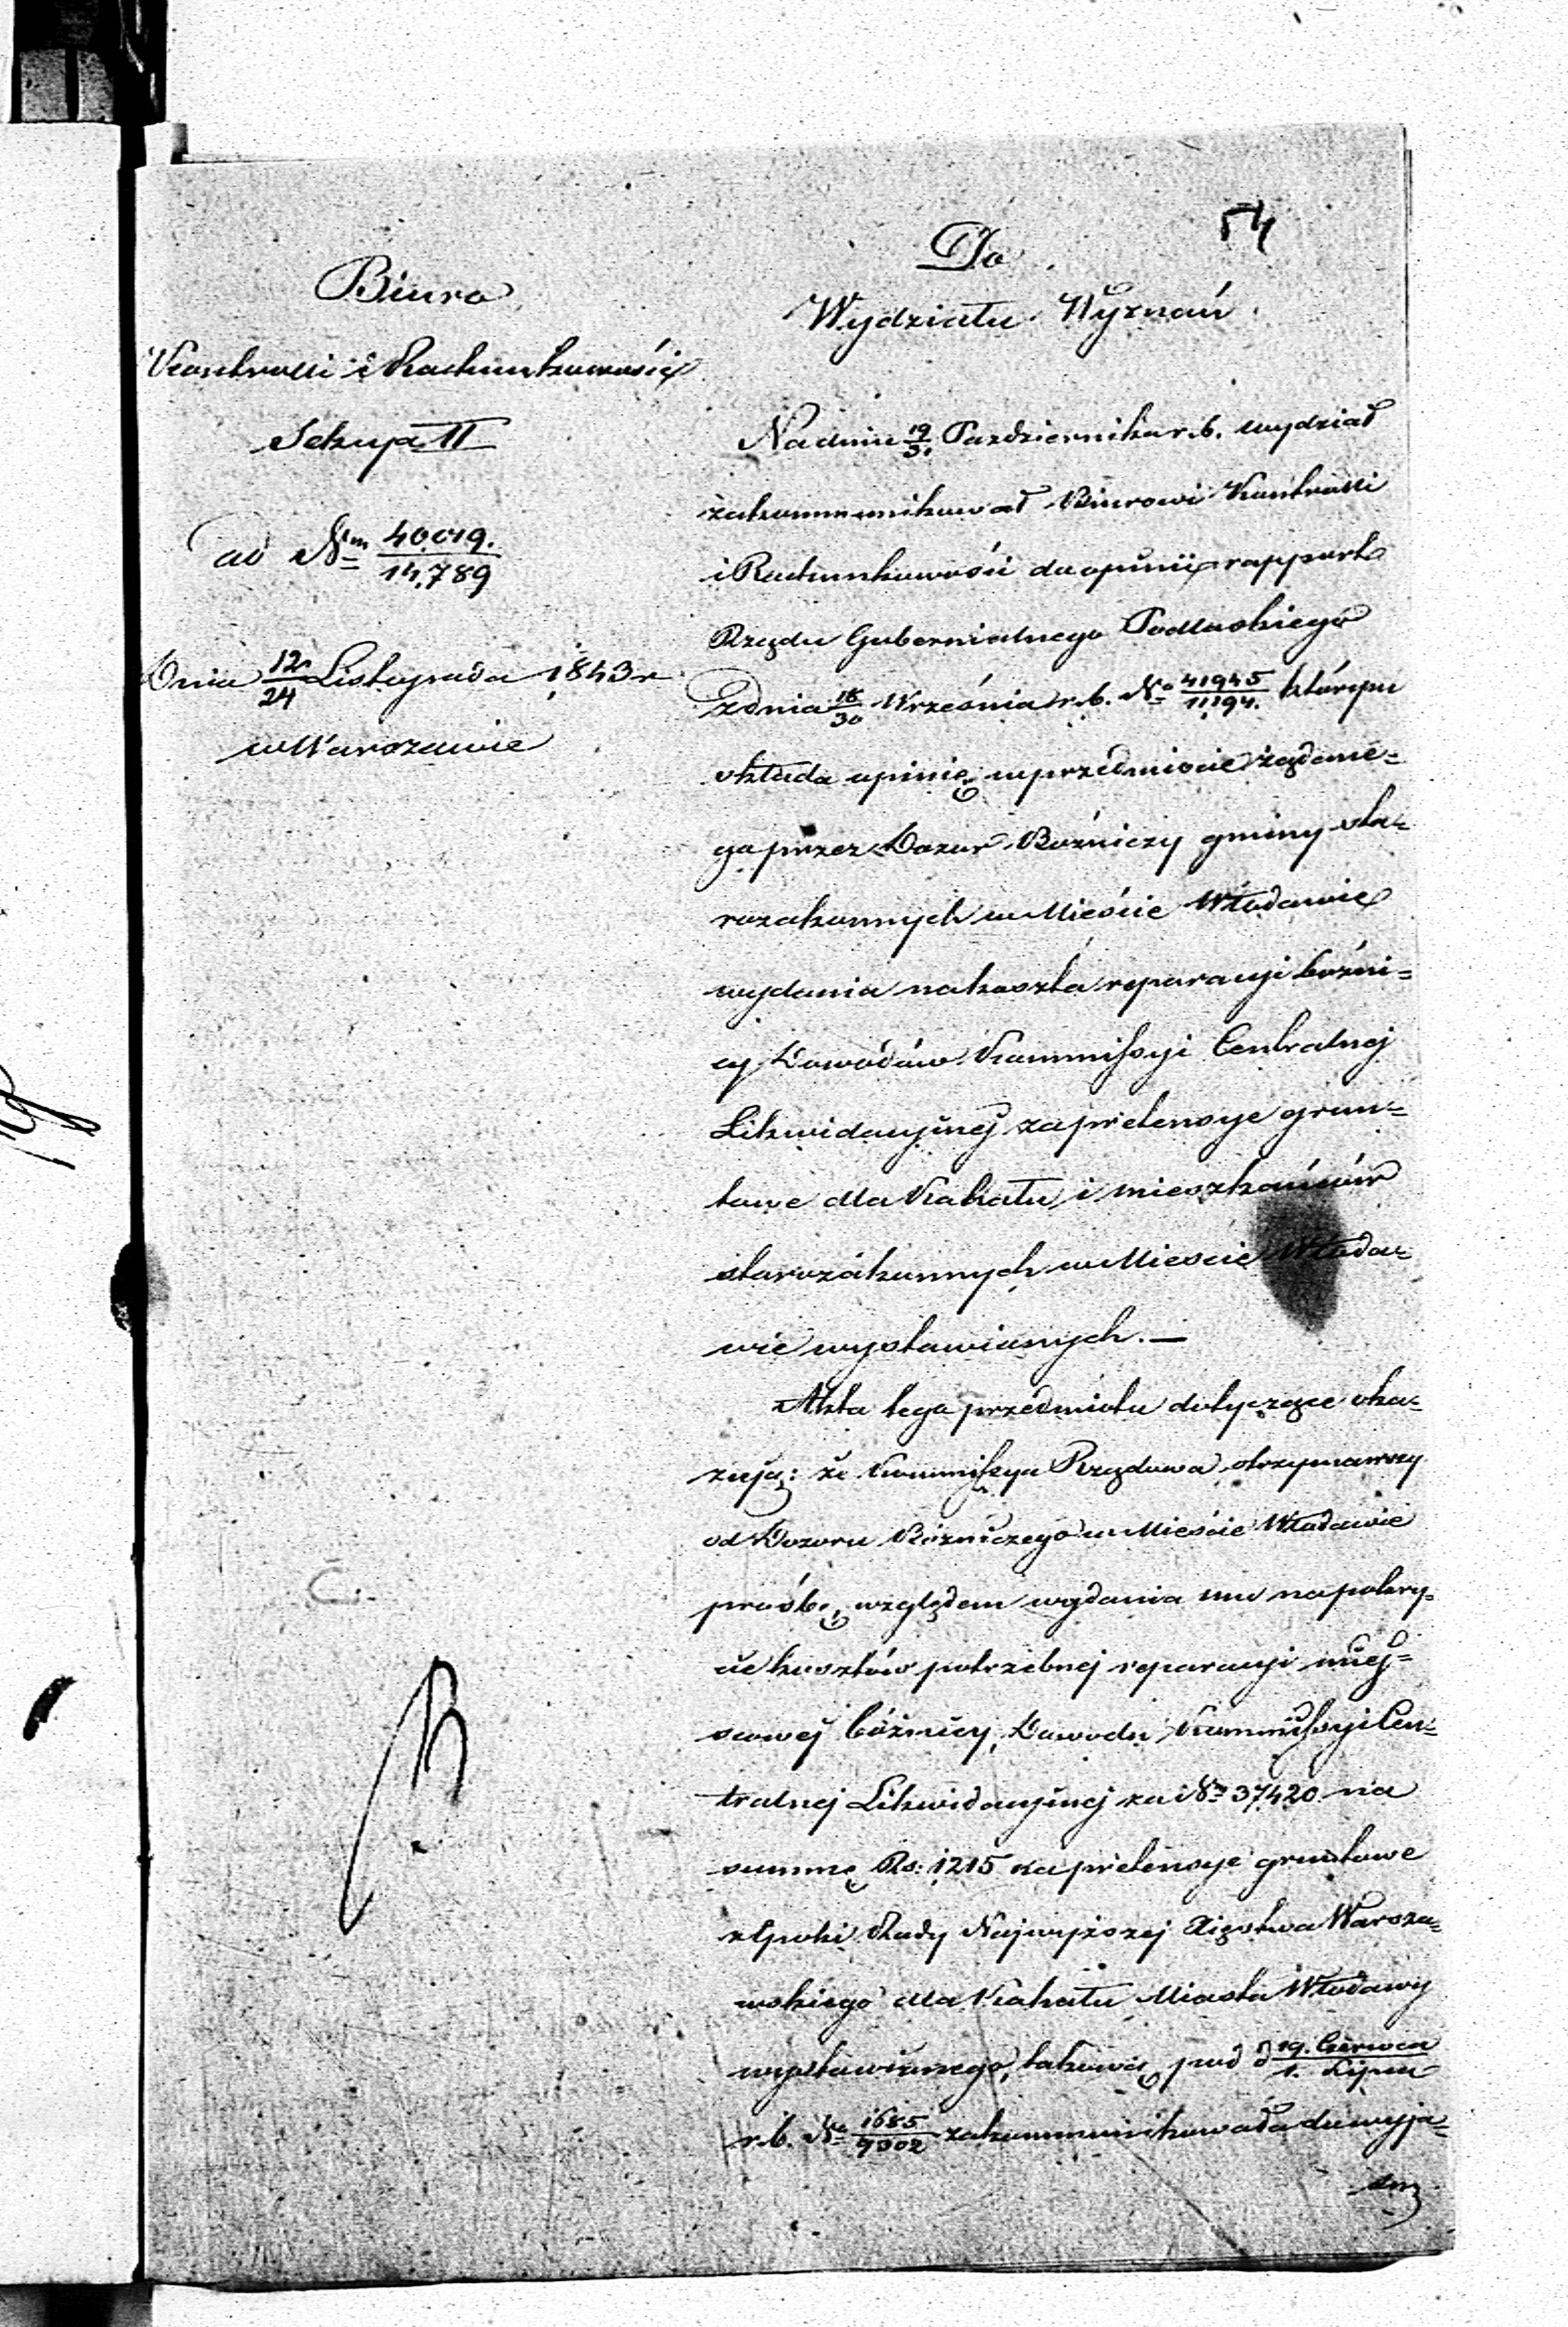 54
Biuro
Kontrolli i Rachunkowości
Sekcya II
ad Nrm 40,019./14,789
Dnia 12/24 Listopada 1843 r
w Warszawie
Do
Wydziału Wyznań
Na dniu 19/31 Października r.b. wydział
zakommunikował Biurowi Kontrolli
i Rachunkowości do opinii rapport
Rządu Gubernialnego Podlaskiego
z dnia 18/30 Września r.b. No 41945/11194. którym
składa opinię w przedmiocie żądane=
go przez Dozór Bożniczy gminy sta=
rozakonnych w Mieście Włodawie
wydania na koszta reparacyi bożni=
cy, Dowodów Kommissyi Centralnej
Likwidacyjnej za pretensye grun=
towe dla Kahału i mieszkańców
starozakonnych w Mieście Włoda=
wie wystawionych. —
Akta tego przedmiotu dotyczące oka=
zują: że Kommissya Rządowa otrzymawszy
od Dozoru Bożniczego w Mieście Włodawie
prośbę, względem wydania mu na pokry=
cie kosztów potrzebnej reparacyi miej=
scowej bóżnicy, Dowodu Kommissyi Cen=
tralnej Likwidacyjnej za Nr 37420 na
summę Rs: 1215 za pretensye gruntowe
z Epoki Rady Najwyższej Xięstwa Warsza=
wskiego dla Kahału Miasta Włodawy
wystawionego, takową pod d 19. Czerwca/1. Lipca
r.b. No 1685/9302 zakommunikowała do wyja=
śnie